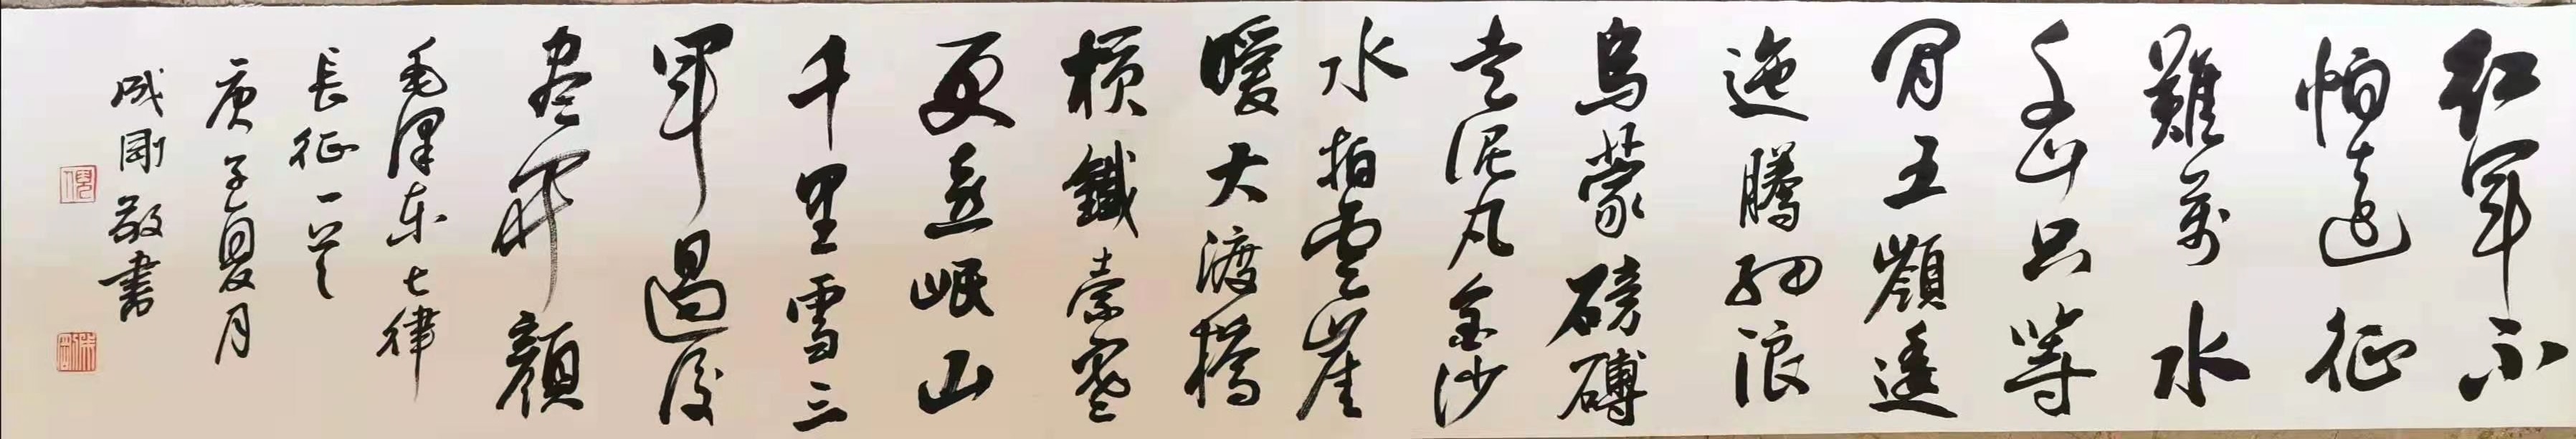 紅軍不
怕遠征
難萬水
千山只等
閒五嶺逶
迤騰細浪
烏蒙磅礴
走泥丸金沙
水拍雲崖
暖大渡橋
横鐵索寒
更喜岷山
千里雪三
軍過後
盡開顏
毛澤東七律
長征一首
庚子夏月
成剛敬書